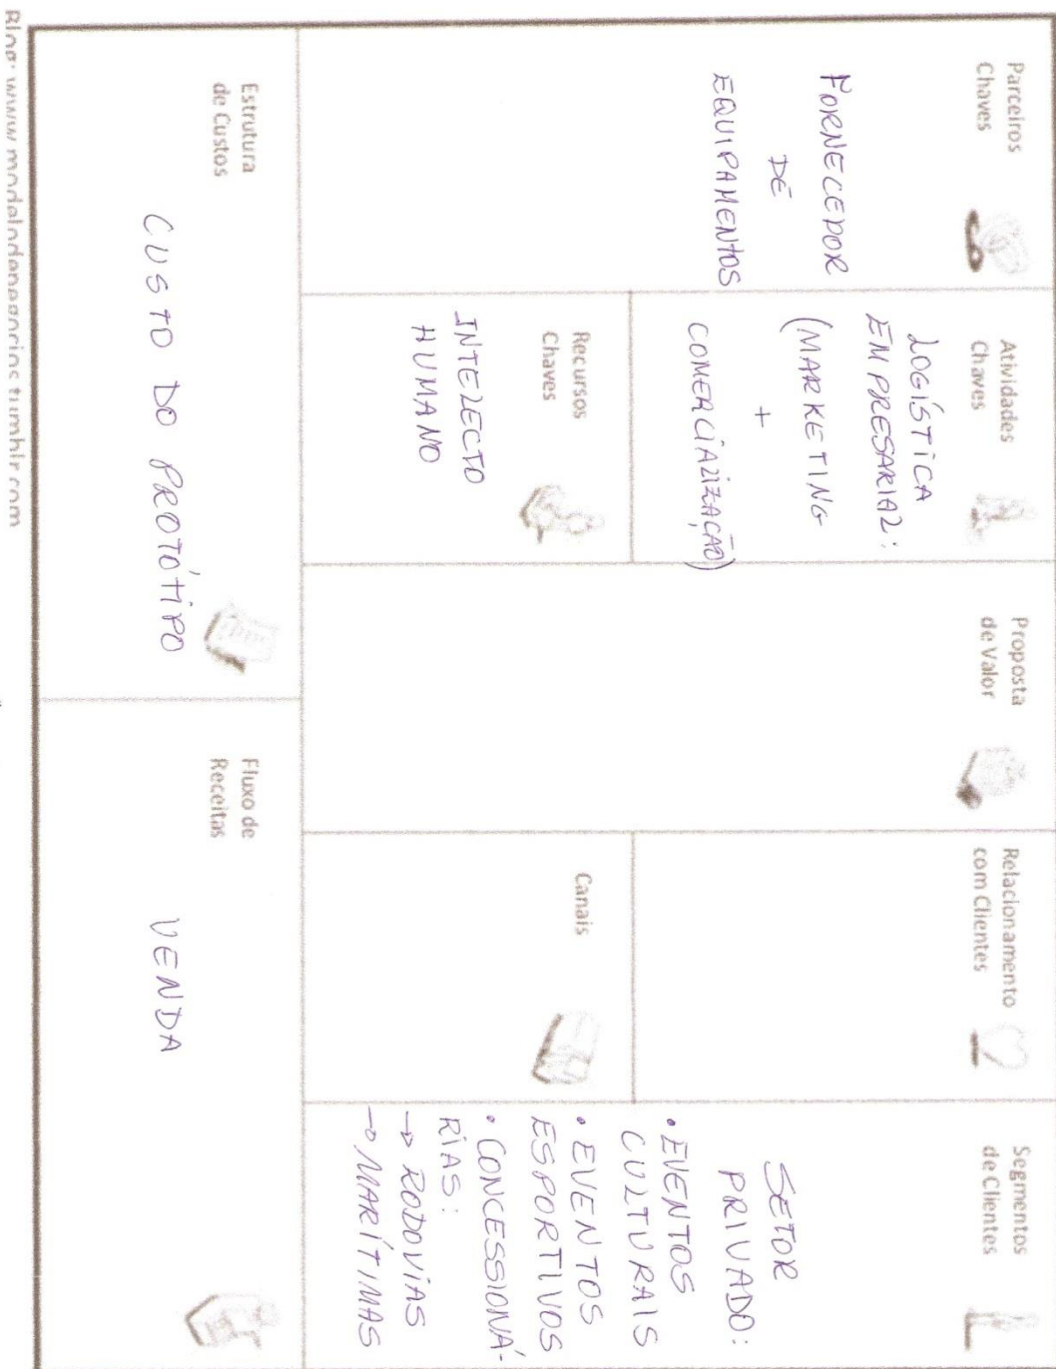 Parceiros
Chaves
FORNECEDOR
DE
EQUIPAMENTOS
Atividades
Chaves
LOGÍSTICA
EMPRESARIAL:
(MARKETING
+
COMERCIALIZAÇÃO)
Recursos
Chaves
INTELECTO
HUMANO
Proposta
de Valor
Relacionamento
com Clientes
Canais
Segmentos
de Clientes
SETOR
PRIVADO:
• EVENTOS
CULTURAIS
• EVENTOS
ESPORTIVOS
• CONCESSIONÁ-
RIAS:
→ RODOVIAS
→ MARÍTIMAS
Estrutura
de Custos
CUSTO DO PROTÓTIPO
Fluxo de
Receitas
VENDA
Blog: www.modelodenegocios.tumblr.com